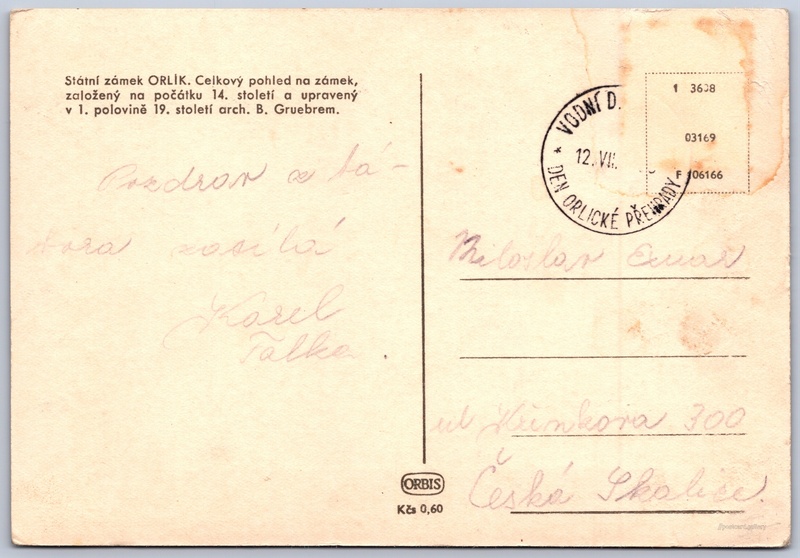 Státní zámek ORLÍK. Celkový pohled na zámek,
založený na počátku 14. století a upravený
v 1. polovině 19. století arch. B. Gruebrem.
Pozdrav z tá-
bora zasílá
Karel
VODNÍ D.
12. VII.
* DEN ORLICKÉ PŘEHRADY
1 3638
03169
F 106166
Miloslav
ul Kűnkova 300
Česká Skalice.
ORBIS
Kčs 0,60